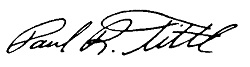 Paul R. Tittl